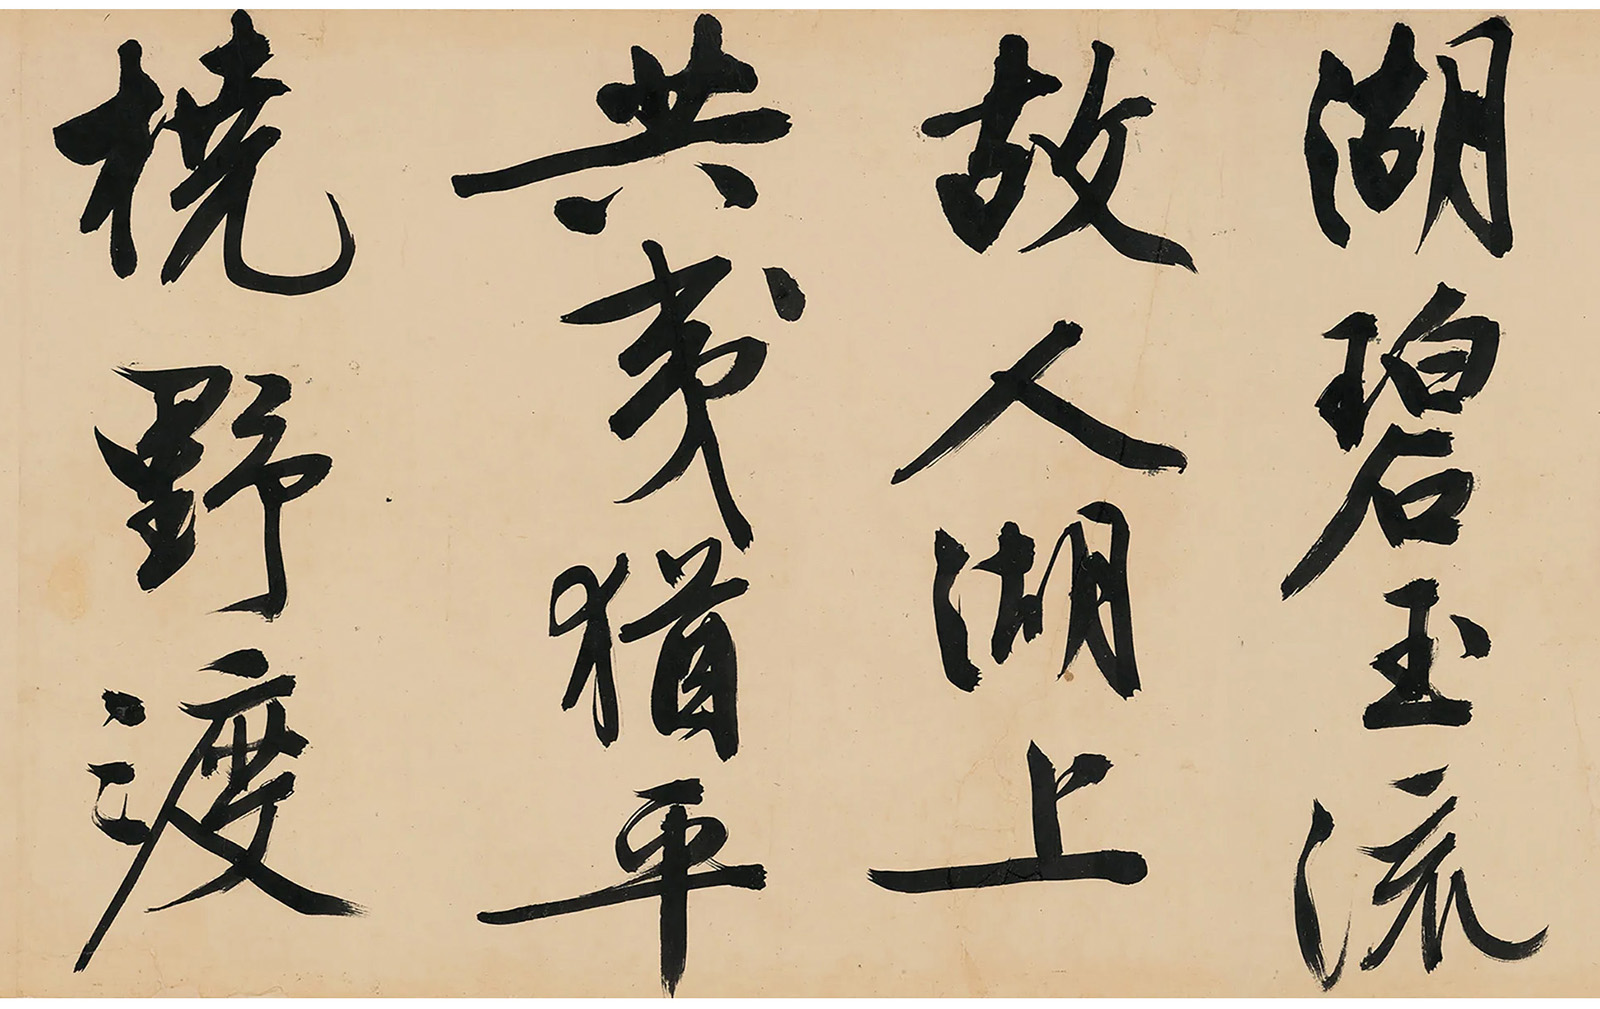 湖碧玉流
故人湖上
共夷猶平
橈野渡